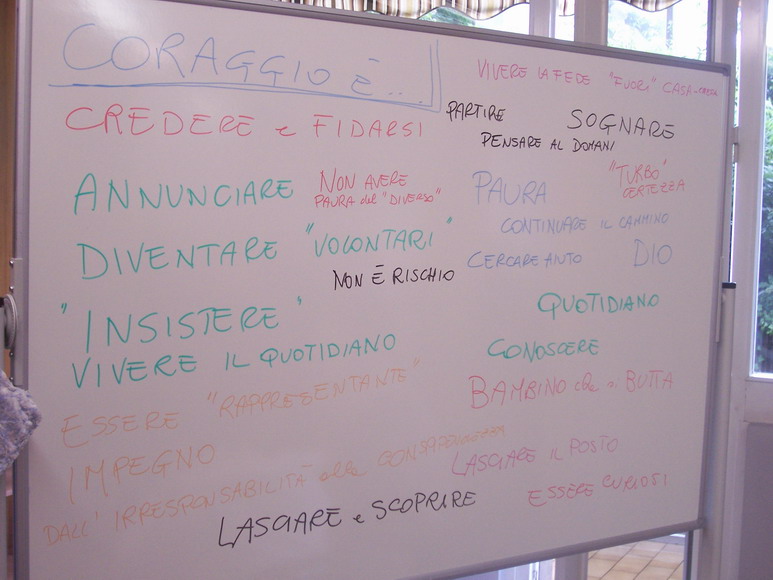 CORAGGIO È...
VIVERE LA FEDE "FUORI" CASA-CHIESA
CREDERE e FIDARSI
PARTIRE
SOGNARE
PENSARE AL DOMANI
ANNUNCIARE
NON AVERE
PAURA del "DIVERSO"
PAURA
"TURBO"
CERTEZZA
DIVENTARE "VOLONTARI"
CONTINUARE IL CAMMINO
NON È RISCHIO
CERCARE AIUTO
DIO
"INSISTERE"
QUOTIDIANO
VIVERE IL QUOTIDIANO
CONOSCERE
ESSERE "RAPPRESENTANTE"
BAMBINO che si BUTTA
IMPEGNO
DALL'IRRESPONSABILITÀ alla CONSAPEVOLEZZA
LASCIARE IL POSTO
LASCIARE e SCOPRIRE
ESSERE CURIOSI